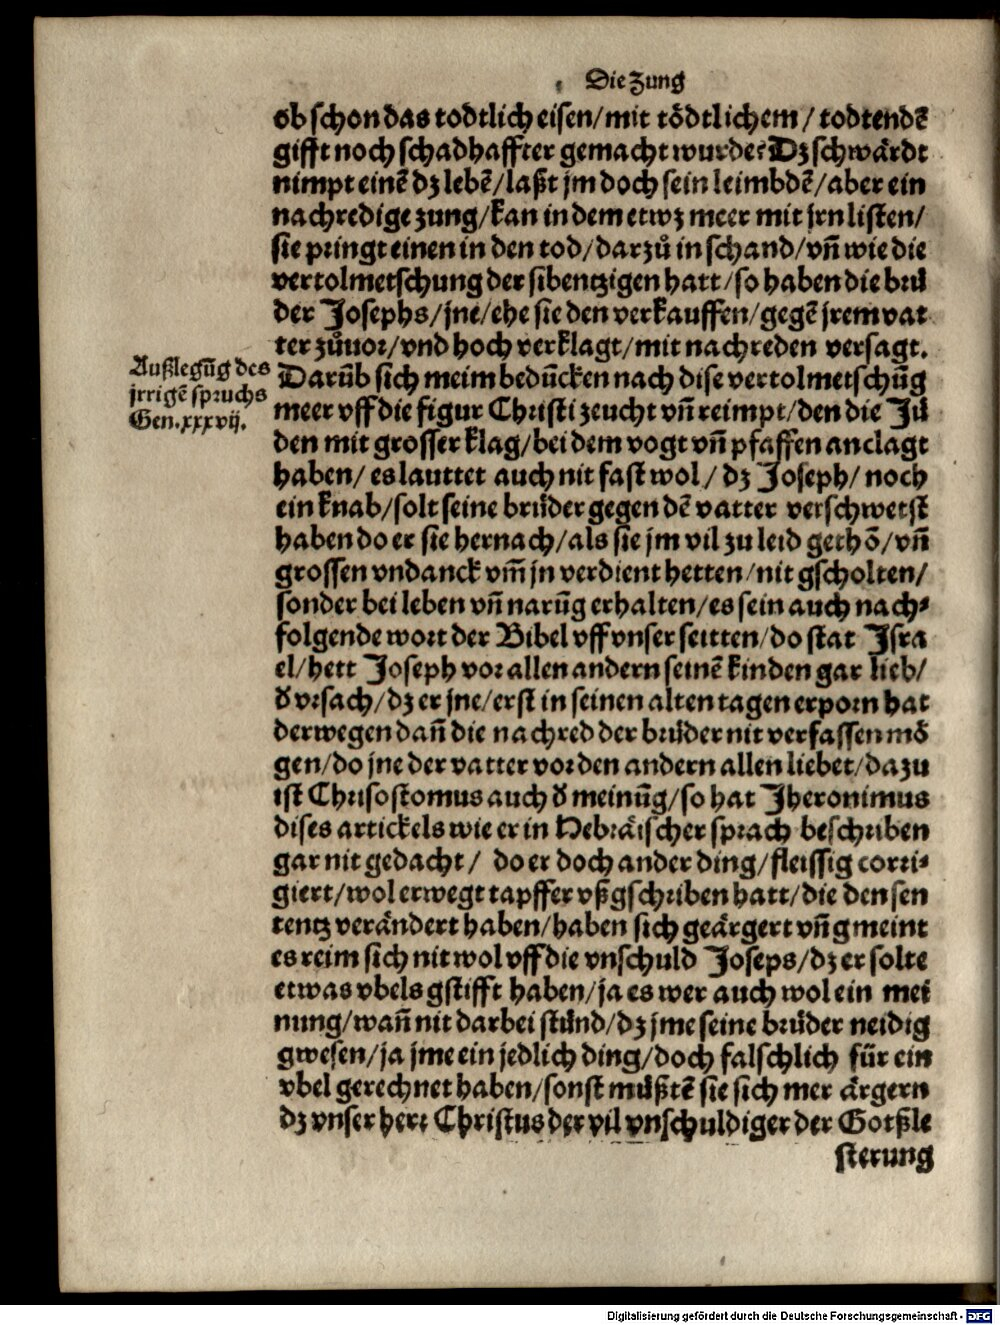 Die Zung
ob schon das todtlich eisen/mit tödtlichem/todtendē
gifft noch schadhaffter gemacht wurde? Dz schwärdt
nimpt einē dz lebē/laßt jm doch sein leimbdē/aber ein
nachredige zung/kan in dem etwz meer mit jrn listen/
sie pringt einen in den tod/darzů in schand/vñ wie die
vertolmetschung der sibentzigen hatt/so haben die brü
der Josephs/jne/ehe sie den verkauffen/gegē jrem vat
ter zůuor/vnd hoch verklagt/mit nachreden versagt.
Darūb sich meim bedūcken nach dise vertolmetschūg
meer vff die figur Christi zeucht vñ reimpt/den die Jü
den mit grosser klag/bei dem vogt vñ pfaffen anclagt
haben/es lauttet auch nit fast wol/dz Joseph/noch
ein knab/solt seine brüder gegen dē vatter verschwetzt
haben do er sie hernach/als sie jm vil zu leid gethō/vñ
grossen vndanck vm̄ jn verdient hetten/nit gscholten/
sonder bei leben vñ narūg erhalten/es sein auch nach⸗
folgende wort der Bibel vff vnser seitten/do stat Isra
el/hett Joseph vor allen andern seinē kinden gar lieb/
d̄ vrsach/dz er jne/erst in seinen alten tagen erporn hat
derwegen dañ die nachred der brüder nit verfassen mö
gen/do jne der vatter vor den andern allen liebet/dazu
ist Chrisostomus auch d̄ meinūg/so hat Jheronimus
dises artickels wie er in Hebräischer sprach beschriben
gar nit gedacht/do er doch ander ding/fleissig corri⸗
giert/wol erwegt tapffer vßgschriben hatt/die den sen
tentz verändert haben/haben sich geärgert vñ gmeint
es reim sich nit wol vff die vnschuld Joseps/dz er solte
etwas vbels gstifft haben/ja es wer auch wol ein mei
nung/wañ nit darbei stünd/dz jme seine brüder neidig
gwesen/ja jme ein jedlich ding/doch falschlich für ein
vbel gerechnet haben/sonst müßtē sie sich mer ärgern
dz vnser herr Christus der vil vnschuldiger der Gotßle
sterung
Außlegūg des
jrrigē spruchs
Gen.xxxvij.
Digitalisierung gefördert durch die Deutsche Forschungsgemeinschaft - DFG